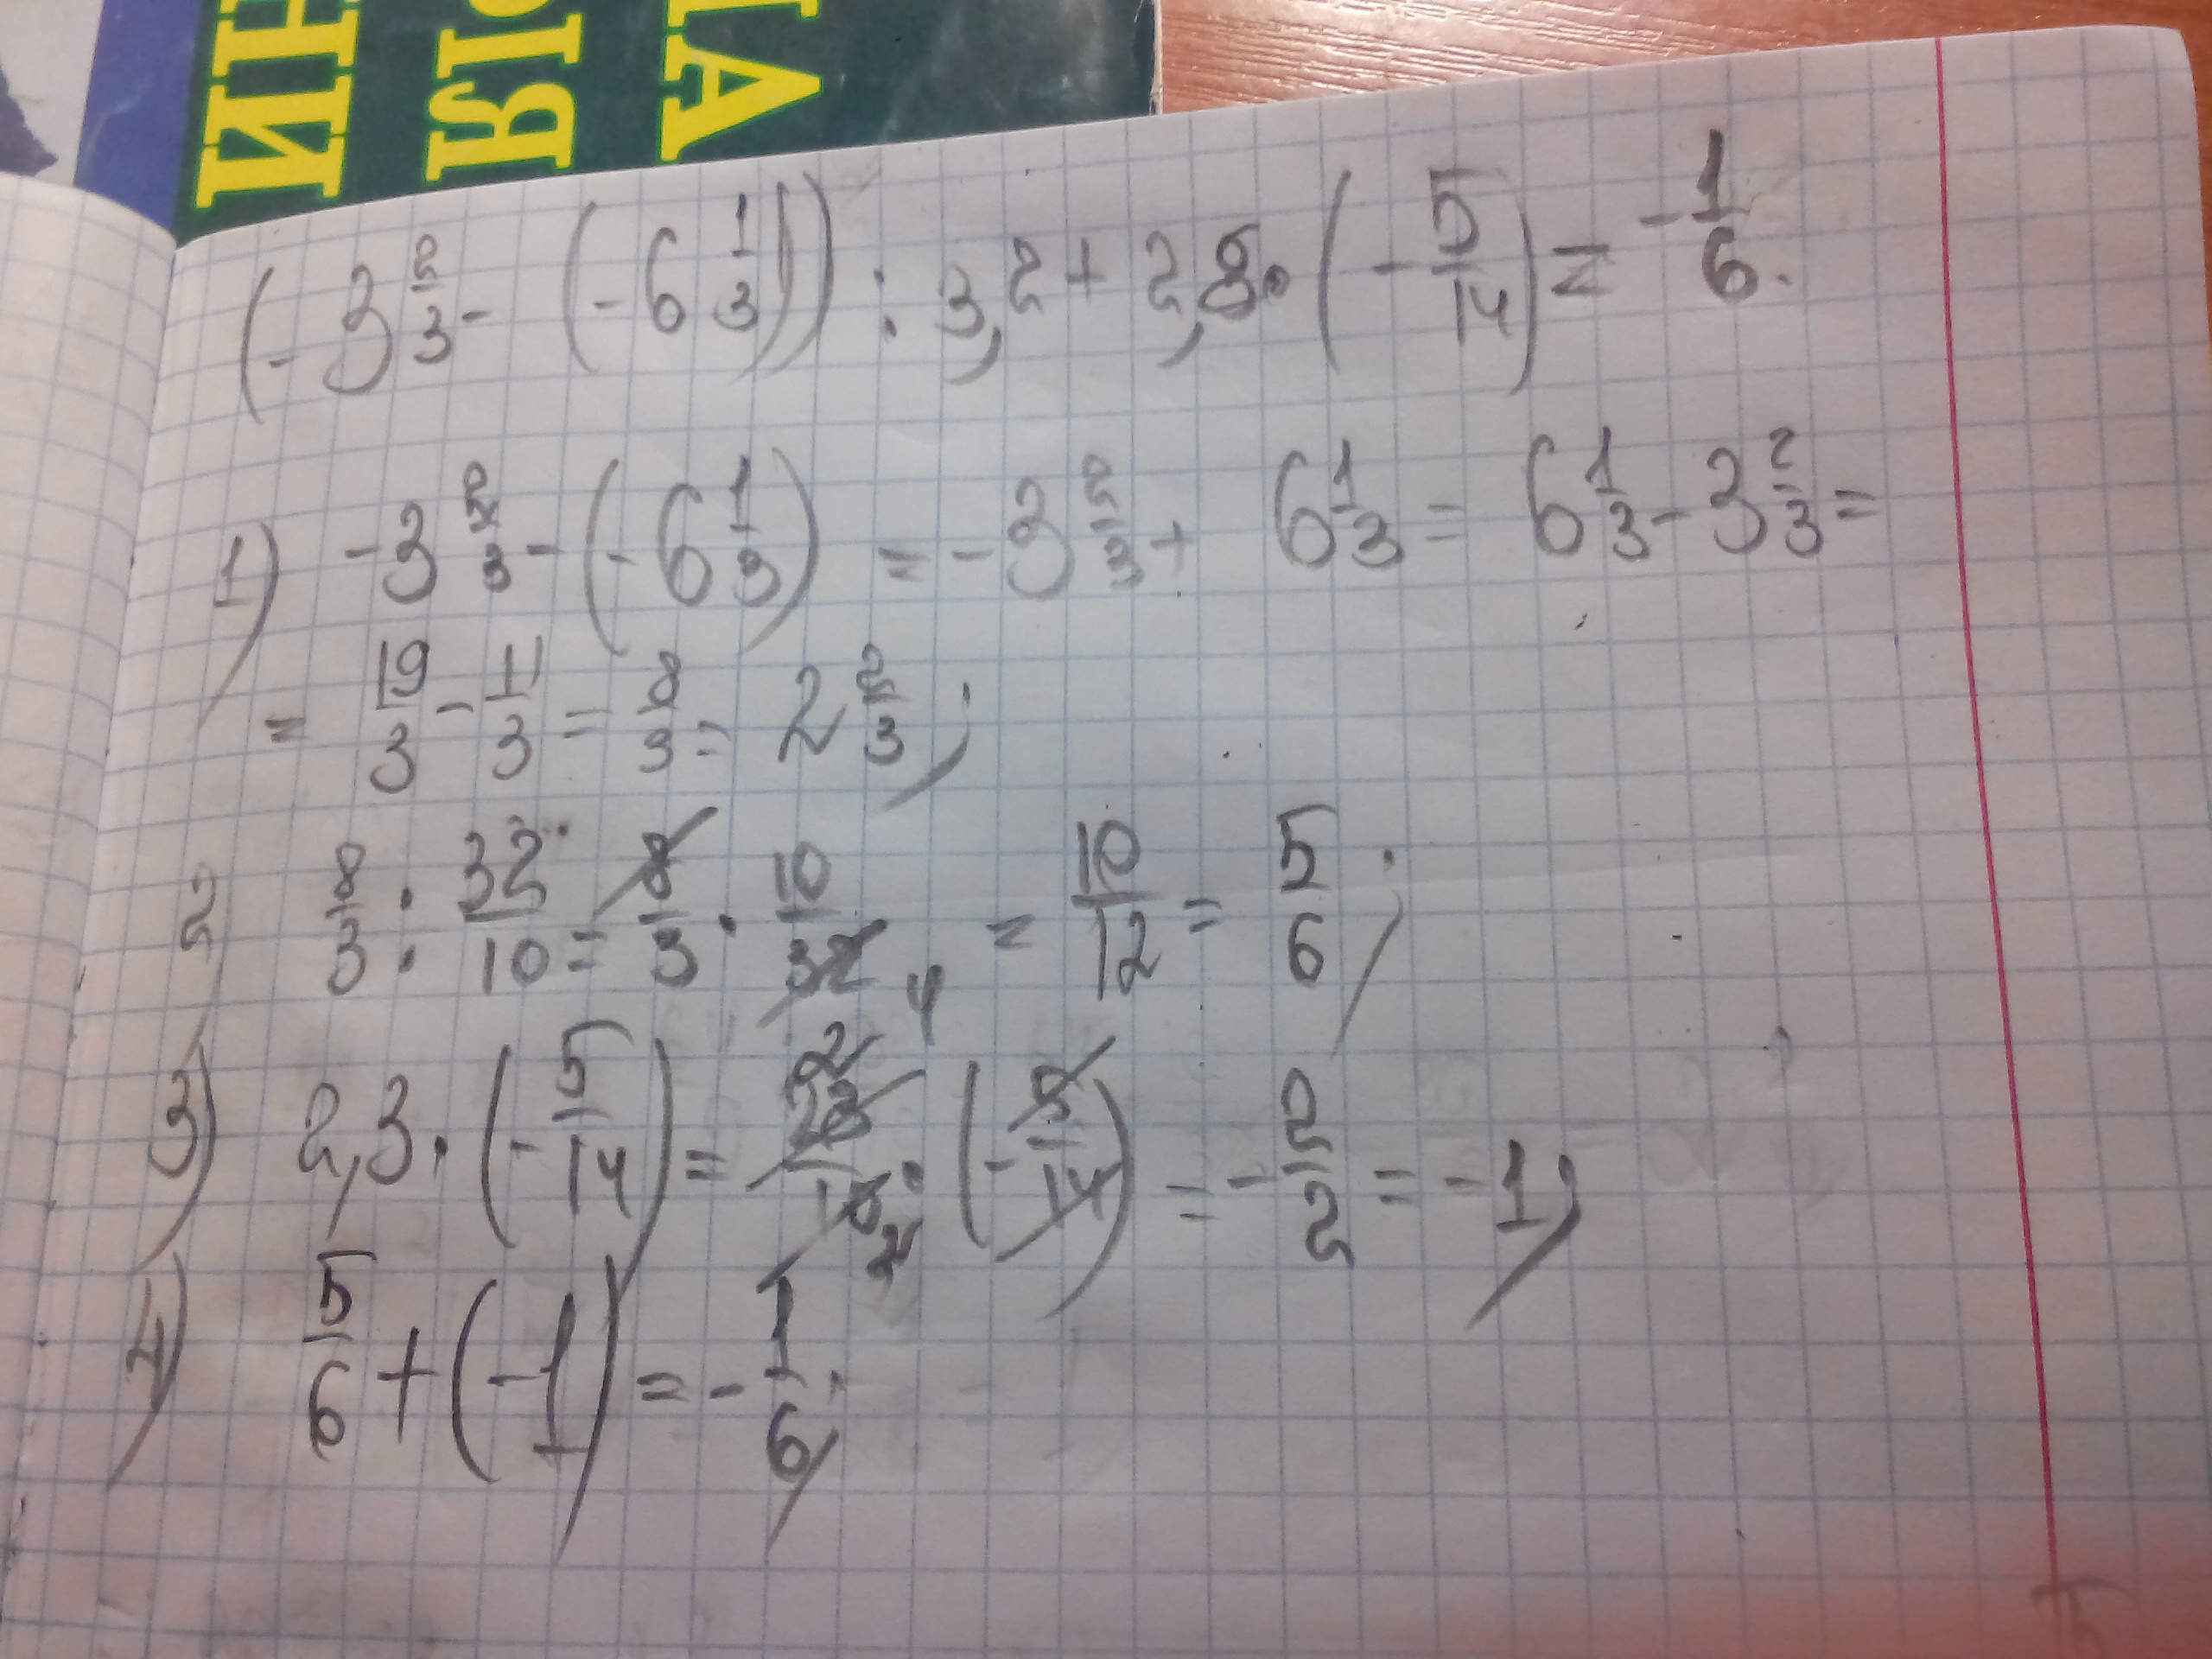 ИН
ЯЗЫ
МА
(-3 2/3 - (-6 1/3)) : 3,2 + 2,8 · (-5/14) = -1/6.
1) -3 2/3 - (-6 1/3) = -3 2/3 + 6 1/3 = 6 1/3 - 3 2/3 =
= 19/3 - 11/3 = 8/3 = 2 2/3;
2) 8/3 : 32/10 = 8/3 · 10/32 4 = 10/12 = 5/6;
3) 2,3 · (-5/14) = 2 28/10 2 · (-5/14) = -2/2 = -1;
4) 5/6 + (-1) = -1/6;